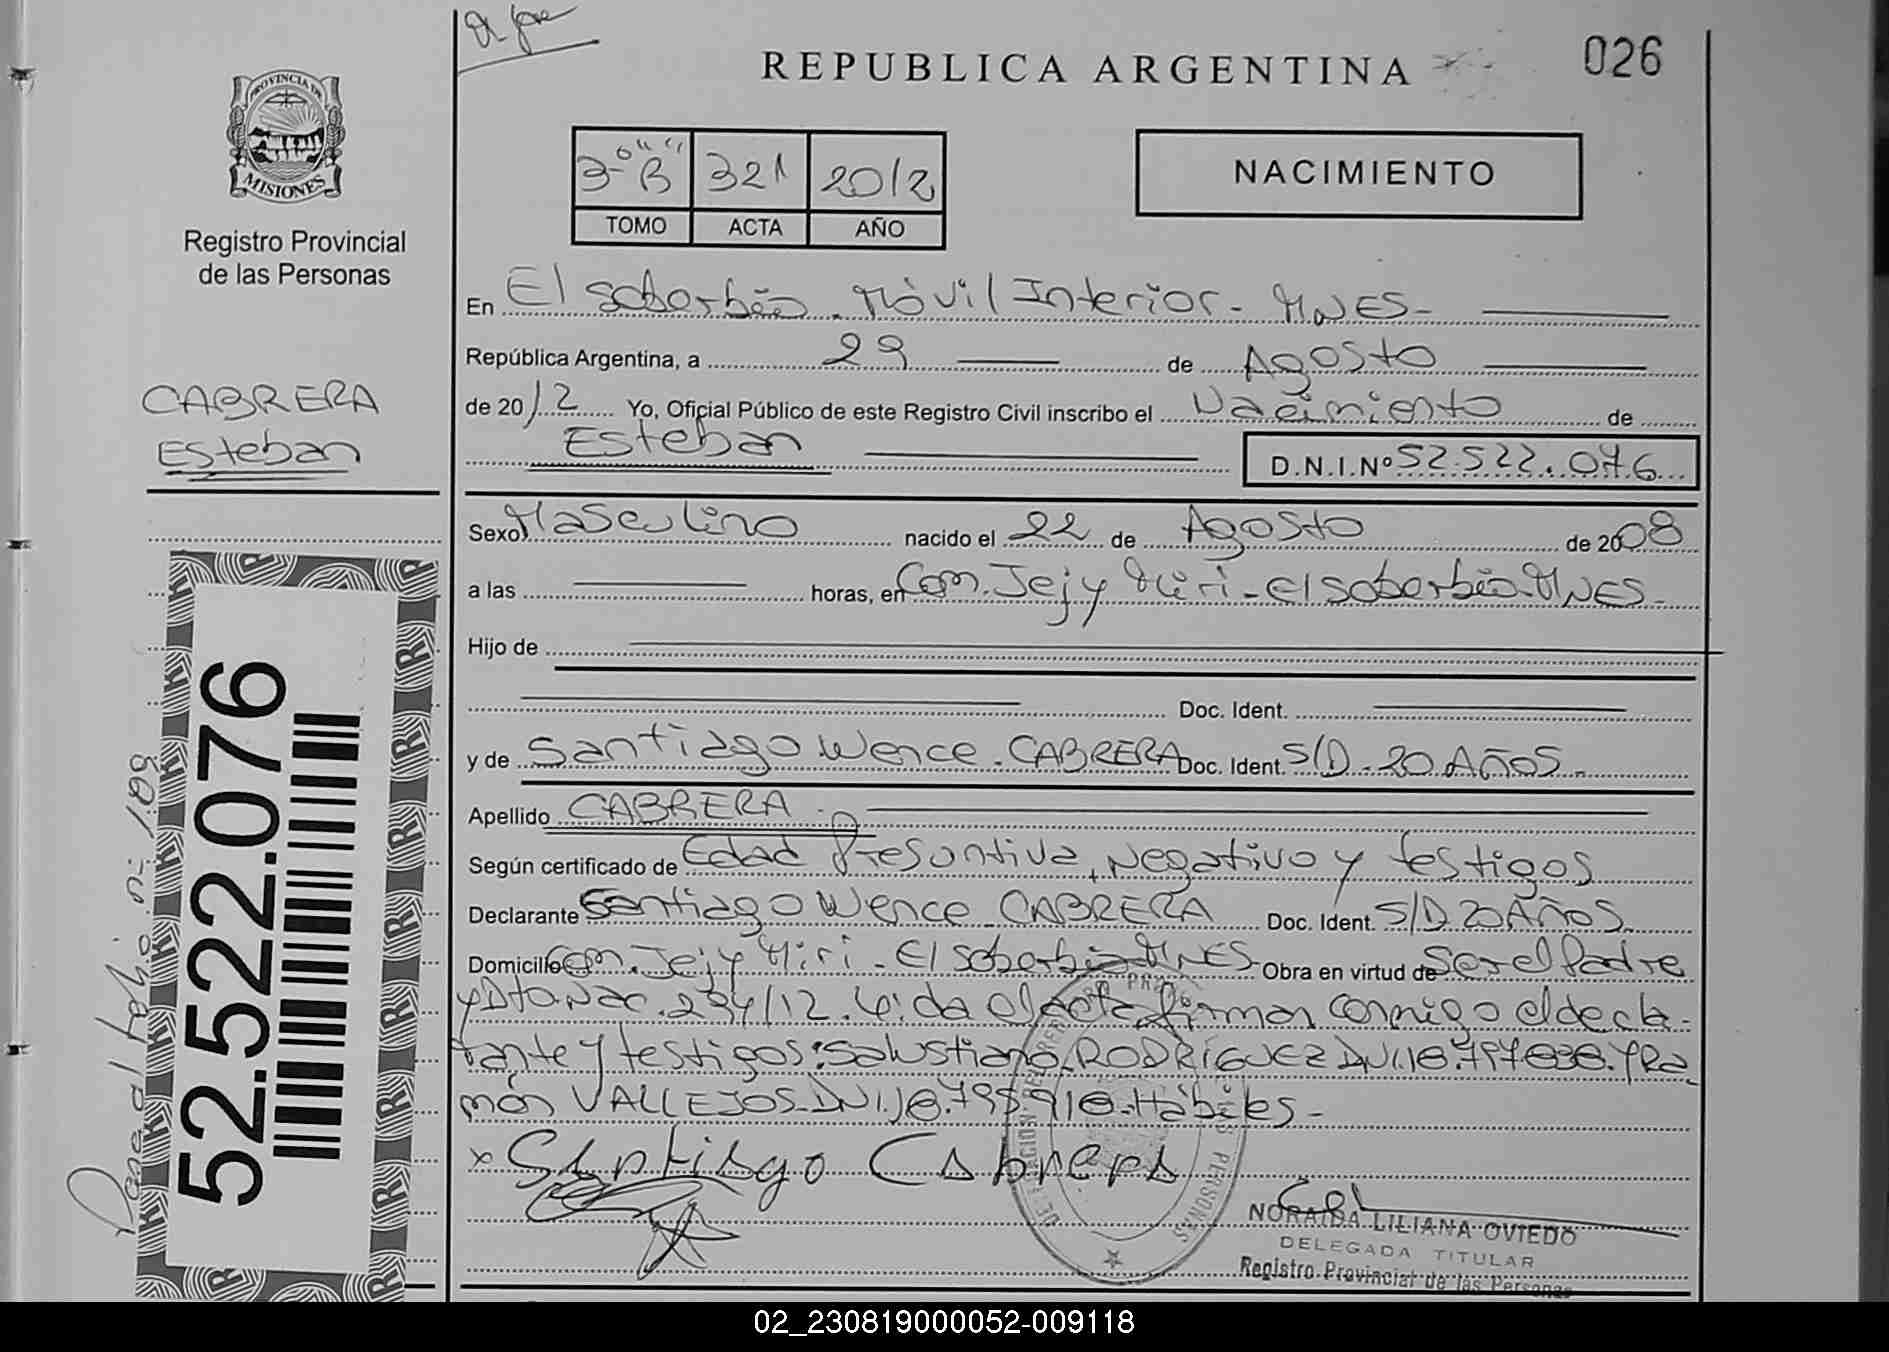 REPUBLICA ARGENTINA
026
PROVINCIA DE
MISIONES
Registro Provincial
de las Personas
3º "B" 321 2012
TOMO ACTA AÑO
NACIMIENTO
En El soberbio. Móvil Interior - MNES-
República Argentina, a 29 de Agosto
de 2012 Yo, Oficial Público de este Registro Civil inscribo el Nacimiento de
Esteban
D.N.I.Nº 52.522.076
CABRERA
Esteban
Sexo Masculino nacido el 22 de Agosto de 2008
a las horas, en Com. Jejy Miri - El Soberbio-MNES-
Hijo de
Doc. Ident.
y de Santiago Wence. CABRERA Doc. Ident. S/D. 20 AÑOS.-
Apellido CABRERA.-
Según certificado de Edad Presuntiva, Negativo y testigos
Declarante Santiago Wence CABRERA Doc. Ident. S/D 20 AÑOS.
Domicilio Com. Jejy Miri - El Soberbio MNES- Obra en virtud de Ser el Padre
y Dto. Nac. 294/12. Leida el acta firman conmigo el decla-
rante y testigos: Salustiano RODRIGUEZ DNI.18.797.838. Y RA
món VALLEJOS-DNI.18.795.918-Hábiles-
x Santiago Cabrera
NORAIDA LILIANA OVIEDO
DELEGADA TITULAR
Registro Provincial de las Personas
52.522.076
02_230819000052-009118